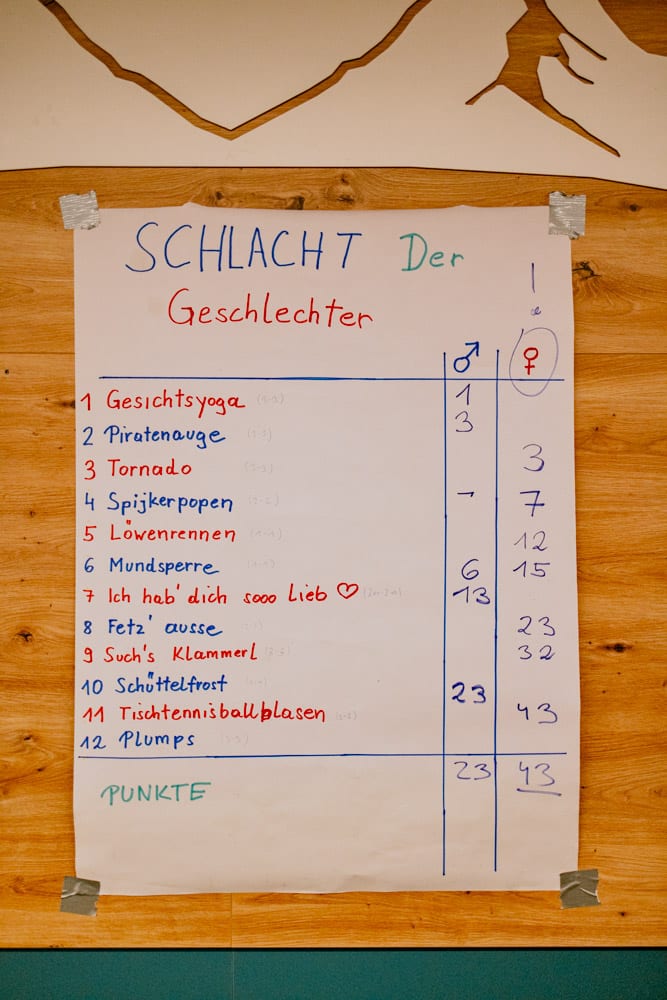 SCHLACHT Der
Geschlechter
!
♂ ♀
1 Gesichtsyoga 1
2 Piratenauge 3
3 Tornado 3
4 Spijkerpopen - 7
5 Löwenrennen 12
6 Mundsperre 6 15
7 Ich hab' dich sooo Lieb ♡ 13
8 Fetz' ausse 23
9 Such's Klammerl 32
10 Schüttelfrost 23
11 Tischtennisballblasen 43
12 Plumps
23 43
PUNKTE